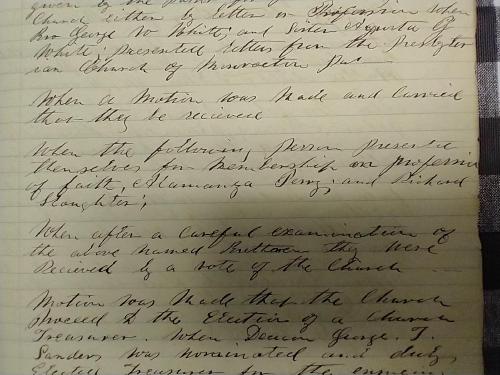 given by the
Church either by letter or Profession When
Bro George W White, and Sister Agusta G
White, presented letters from the Presbyter
ian Church of
When a Motion was Made and Carried
that they be recieved
When the following person presente
themselves for membership on profession
of faith, Alamanza Perry, and Richard
Slaughter,
When after a careful examination of
the above named Brethren they were
Recieved by a vote of the Church
Motion was Made that the Church
proceed to the Election of a Church
Treasurer. When Deacon George T.
Sanders was nominated and duly
Elected Treasurer for the ensuing